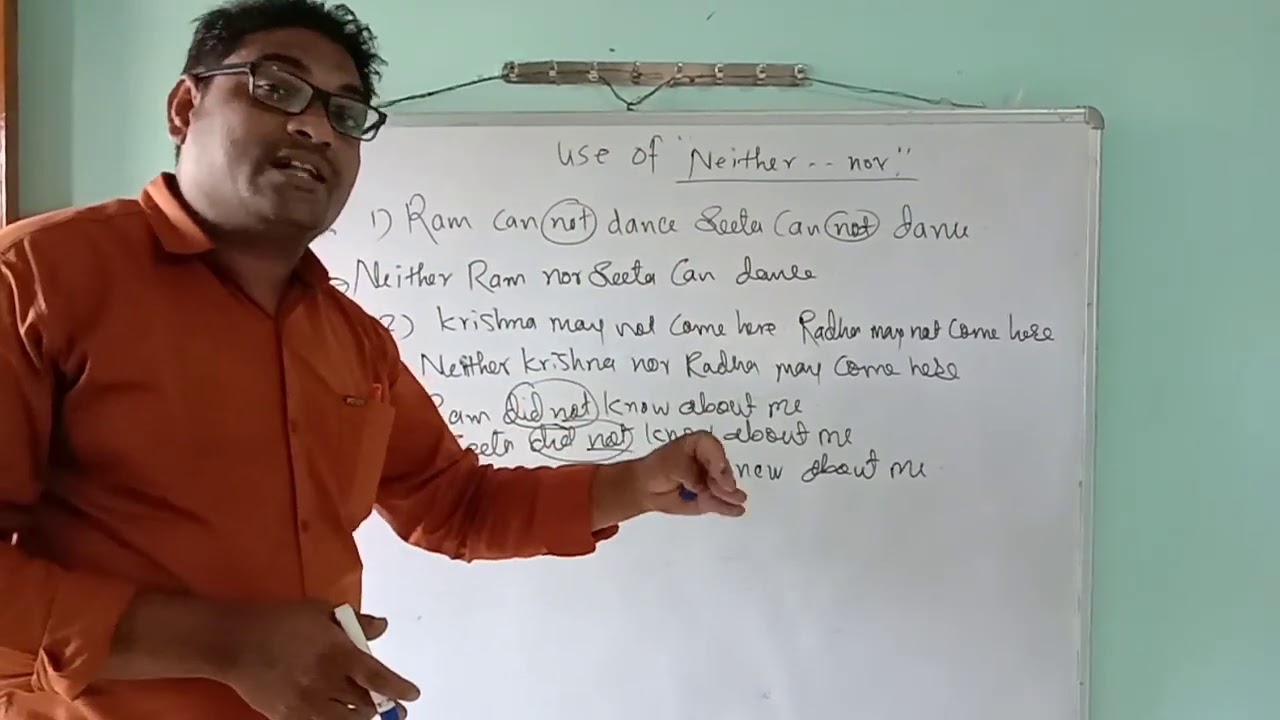 Use of "Neither -- nor"
1) Ram can not dance Seeta Can not dance
Neither Ram nor Seeta Can dance
2) Krishna may not Come here Radha may not Come here
Neither Krishna nor Radha may Come here
Ram did not know about me
Seeta did not know about me
about me